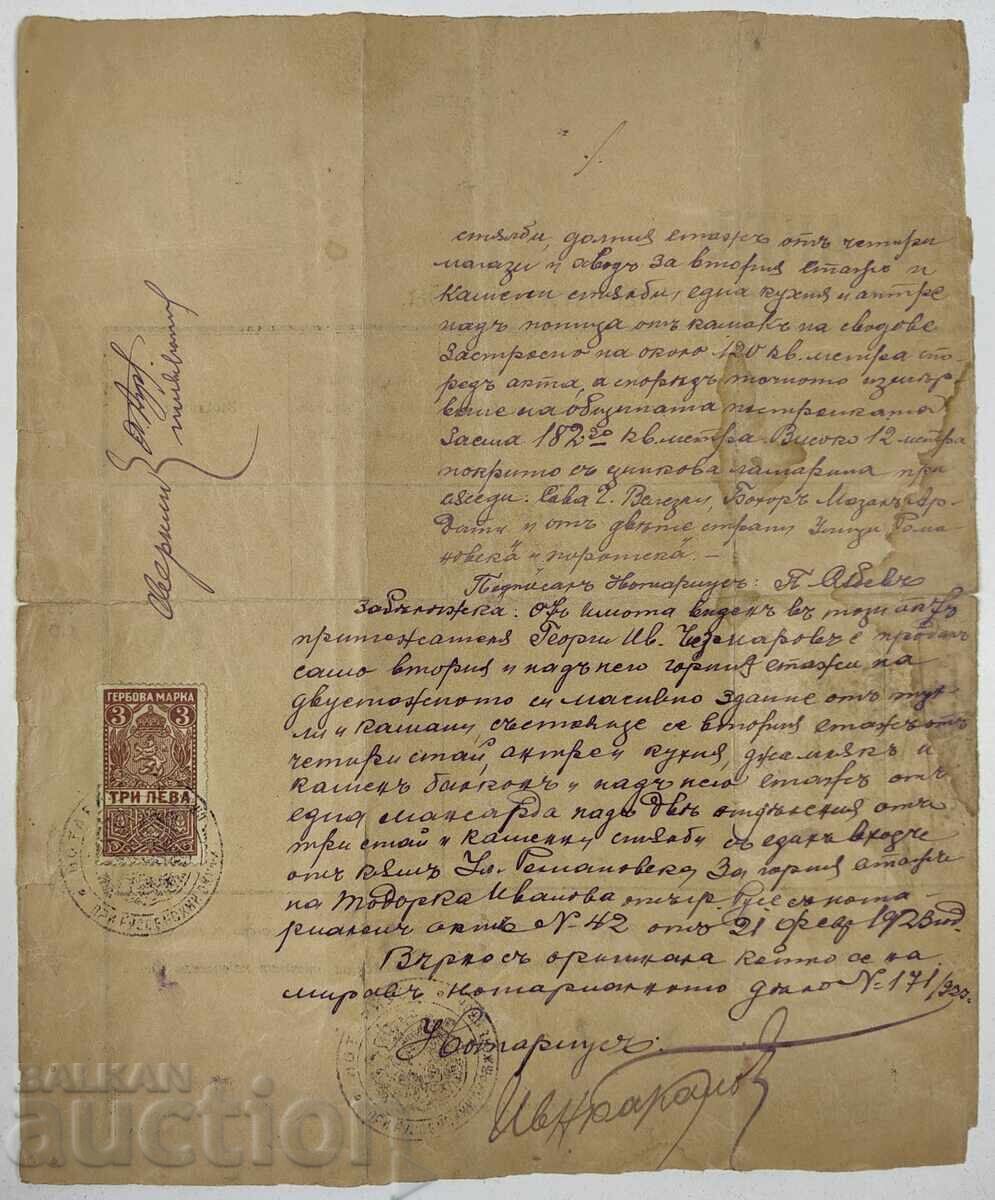 ./.
стълби, долния етажъ отъ четири
магази и входъ за втория етажъ и
каменни стълби, една кухня и антре
надъ поница отъ камъкъ на сводове
Застроено на около 120 кв. метра спо-
редъ акта, а споредъ точното измер-
вание на общината постройката
заема 182 30 кв. метра. Високо 12 метра
покрито съ цинкова ламарина при
съседи: Сава Г. Бохоръ
и отъ двете страни улици Рома-
новска и
Подписалъ Нотариусъ: П.
Забележка: Отъ имота виденъ въ този актъ
притежателя Георги Ив. Чезмаровъ е продалъ
само втория и надъ него горния етажи на
двуетажното си масивно здание отъ тух-
ли и камани, състояще се втория етажъ отъ
четири стаи, антре и кухня, джамлъкъ и
каменъ балконъ и надъ него етажъ отъ
една мансарда надъ две отделения отъ
три стаи и каменни стълби съ еданъ входъ
отъ към ул. Романовска, За горния етажъ
на Тодорка Иванова отъ гр. Русе съ нота-
риаленъ актъ № 42 отъ 21 Февр. 1923 год.
Верно съ оригинала който се на
мира въ нотариалното дело № 171/923.
Нотариусъ:
ГЕРБОВА МАРКА
3 3
ТРИ ЛЕВА
BALKAN
auction